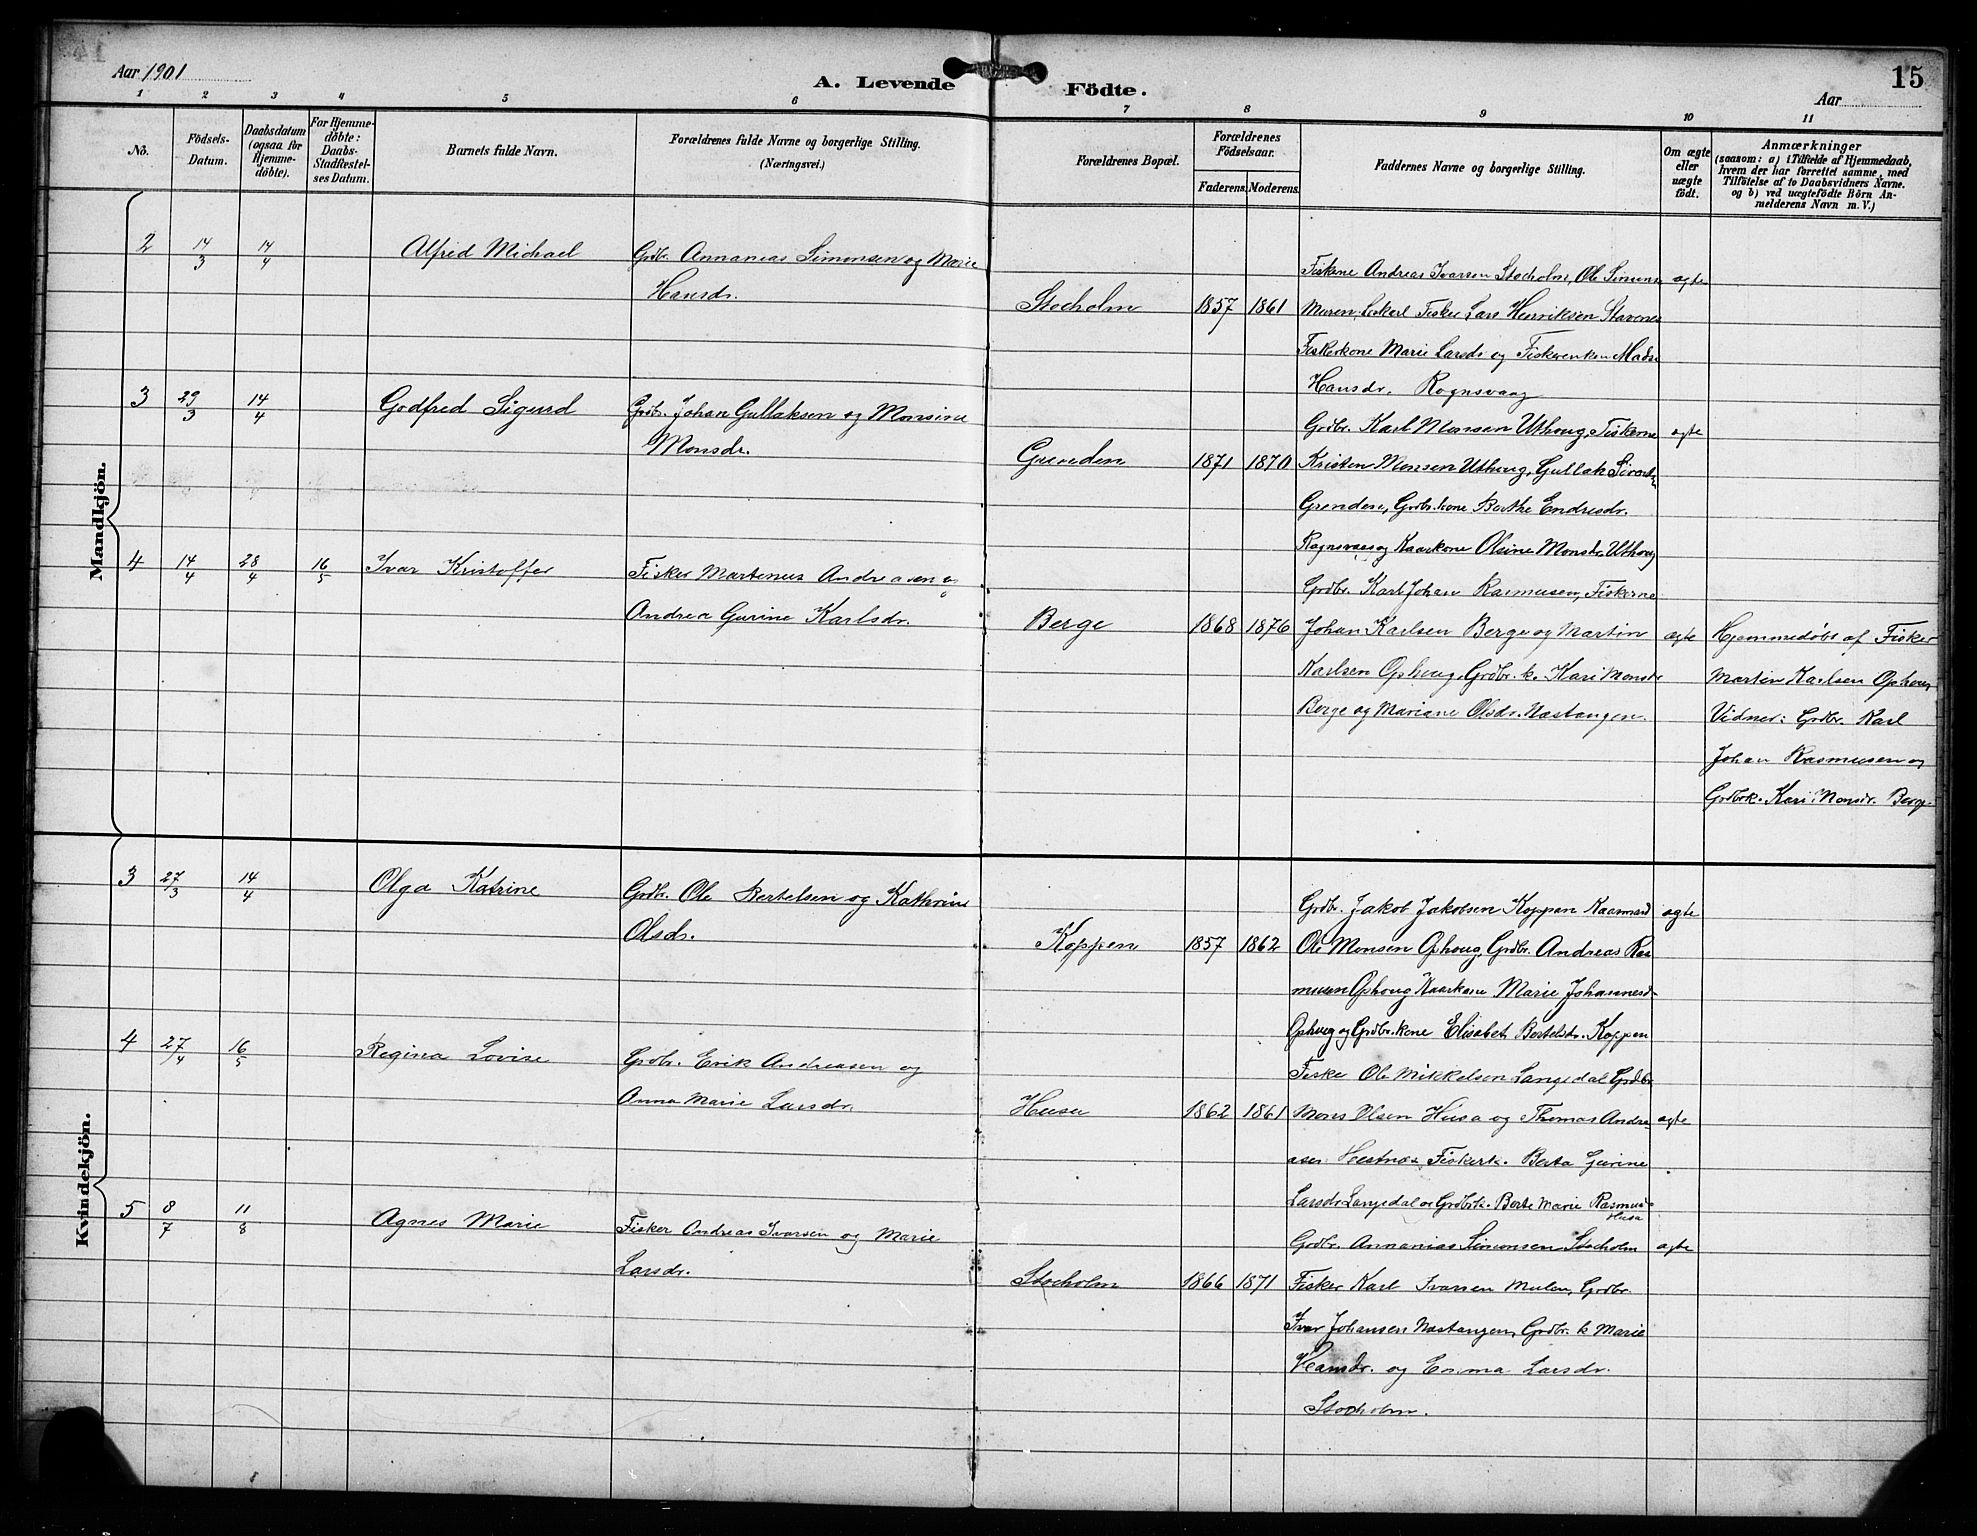 Aar 1901
A. Levende Födte.
15
Aar
1 2 3 4 5 6 7 8 9 10 11
No.
Födsels-Datum.
Daabsdatum (ogsaa for Hjemme-döbte).
For Hjemme-döbte: Daabs-Stadfæstel-ses Datum.
Barnets fulde Navn.
Forældrenes fulde Navne og borgerlige Stilling.
(Næringsvei.)
Forældrenes Bopæl.
Forældrenes Födselsaar.
Faderens. Moderens.
Faddernes Navne og borgerlige Stilling.
Om ægte eller uægte födt.
Anmærkninger
(saasom: a) i Tilfælde af Hjemmedaab,
hvem der har forrettet samme, med
Tilföielse af to Daabsvidners Navne.
og b) ved uægtefödte Börn An-
melderens Navn m. V.)
Mandkjön.
2 14/3 14/4 Alfred Michael
Grdbr. Annanias Simonsen og Marie
Hansdr.
Stocholm 1857 1861
Fiskerne Andreas Ivarsen Stocholm, Ole Simons
Maren, Fisker Lars Henriksen Stavenes
Fiskerkone Marie Larsdr og Fiskerenken
Hansdr. Rognsvaag
ægte
3 29/3 14/4 Godfred Sigurd
Grdbr. Johan Gullaksen og Monsine
Monsdr.
Grenden 1871 1870
Grdbr. Karl Monsen Uthoug, Fiskerne
Kristen Monsen Uthoug, Gullak
Grenden, Grdbr.kone Berthe Endresdr.
Rognsvaag og Kaarkone Olsine Monsdr. Uthoug
ægte
4 14/4 28/4 16/5 Ivar Kristoffer
Fisker Martenus Andreasen og
Andrea Gurine Karlsdr.
Berge 1868 1876
Grdbr. Karl Johan Rasmusen, Fiskerne
Johan Karlsen Berge og Martin
Karlsen Ophoug, Grdbr. k. Kari Monsdr
Berge og Mariane Olsdr. Næstangen.
ægte
Hjemmedøbt af Fisker
Martin Karlsen Ophoug
Vidner: Grdbr. Karl
Johan Rasmusen og
Grdbrk. Kari Monsdr. Berge
Kvindekjön.
3 27/3 14/4 Olga Katrine
Grdbr. Ole Bertelsen og Kathrine
Olsdr.
Koppen 1857 1862
Grdbr. Jakob Jakobsen Koppen Kaarmand
Ole Monsen Ophoug, Grdbr. Andreas Ras
musen Ophoug Kaarkone Marie Johannesd
Ophoug og Grdbr.kone Elisabet Bertelsdr. Koppen
ægte
4 27/4 16/5 Regina Lovise
Grdbr. Erik Andreasen og
Anna Marie Larsdr.
Husa 1862 1861
Fisker Ole Mikkelsen Langedal Grdbr
Mons Olsen Husa og Thomas Andre
asen Hestnes, Fiskerk. Berta Gurine
Larsdr Langedal og Grdbrk. Berte Marie Rasmus-
Husa
ægte
5 8/7 11/8 Agnes Marie
Fisker Andreas Ivarsen og Marie
Larsdr.
Stocholm 1866 1871
Grdbr. Annanias Simonsen Stocholm
Fisker Karl Ivarsen Mulen, Grdbr.
Ivar Johansen Næstangen, Grdbr. k Marie
Hansdr. og Emma Larsdr.
Stocholm.
ægte